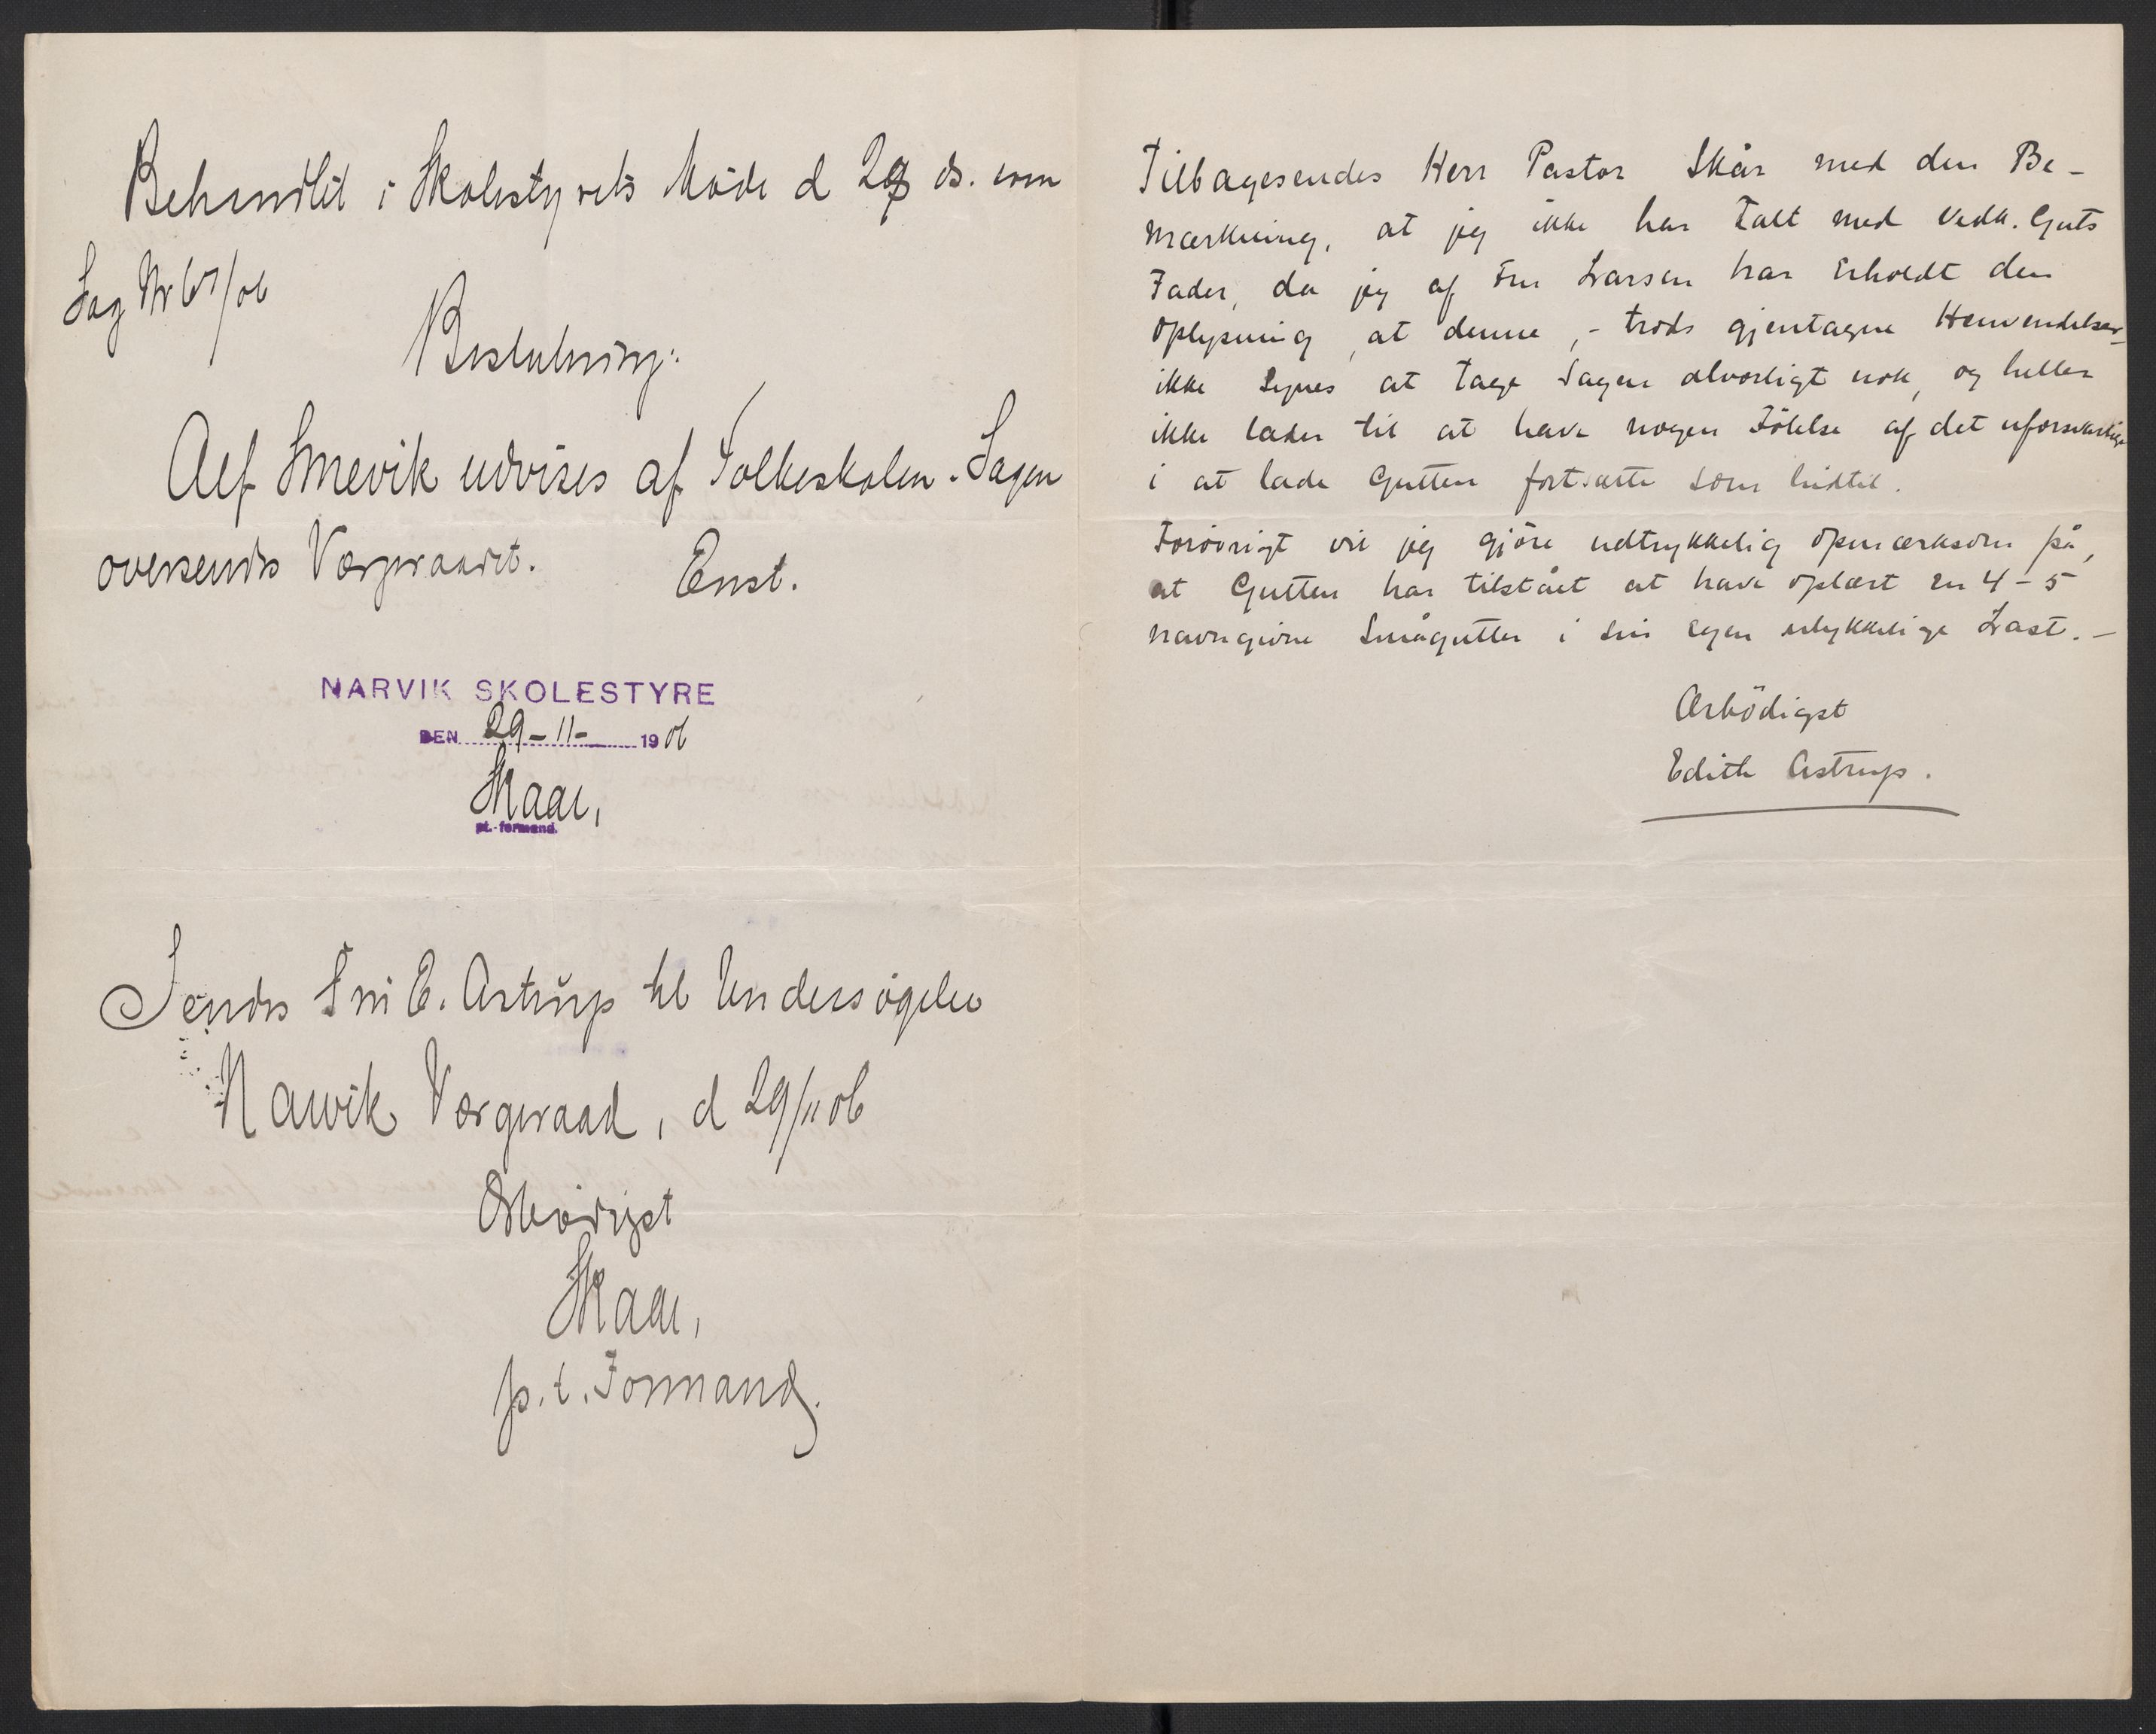 Behandlet i Skolestyrets Møde d 29 ds. som
Sag Nr 67/06
Beslutning:
Alf Smevik udvises af Folkeskolen. Sagen
oversendes Værgeraadet. Enst.
NARVIK SKOLESTYRE
DEN 29-11- 1906
Skaar,
pt. formand.
Sendes Fru E. Astrup til Undersøgelse
Narvik Værgeraad, d 29/11 06
Ærbødigst
Skaar,
p.t. Formand.
Tilbagesendes Herr Pastor Skår med den Be-
mærkning, at jeg ikke har talt med vedk. Guts
Fader, da jeg af Fru Larsen har erholdt den
Oplysning, at denne, - trods gjentagne Henvendelser -
ikke synes at tage Sagen alvorligt nok, og heller
ikke lader til at have nogen Følelse af det uforsvarlige
i at lade Gutten fortsætte som hidtil.
Forøvrigt vil jeg gjöre udtrykkelig opmærksom på,
at Gutten har tilstået at have oplært en 4-5
navngivne Smågutter i sin egen ulykkelige Last. -
Ærbödigst
Edith Astrup.